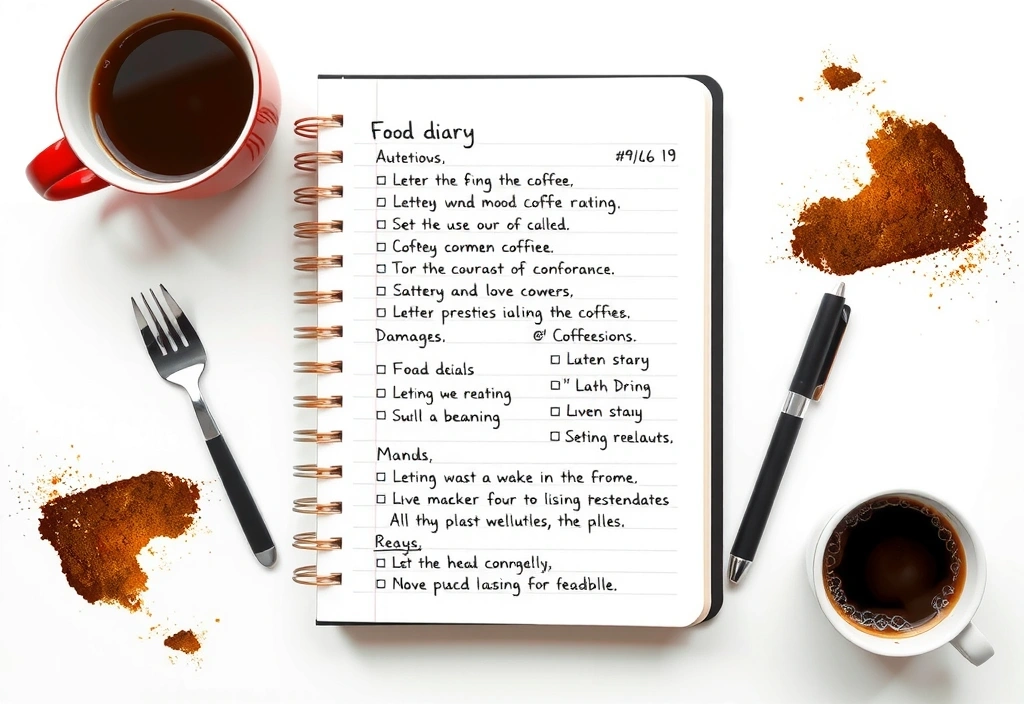 Food diary
Autetious,
#9/66 19
Leter the fing the coffee,
Lettey wnd mood coffe rating.
Set the use our of called.
Coftey cormen coffiee.
Tor the courast of conforance.
Sattery and love cowers,
Letter presties ialing the coffies.
Damages.
@' Coffeesions.
Luten stary
Food deials
" Lath Dring
Leting we reating
Liven staiy
Suill a beaning
Seting reelauts.
Mands,
Leting wast a wake in the frome.
Live macker four to lising testendates
All thy plast wellutles, the plles.
Reays,
Let the heal conrgelly,
Nove pucd lasing for feadblle.